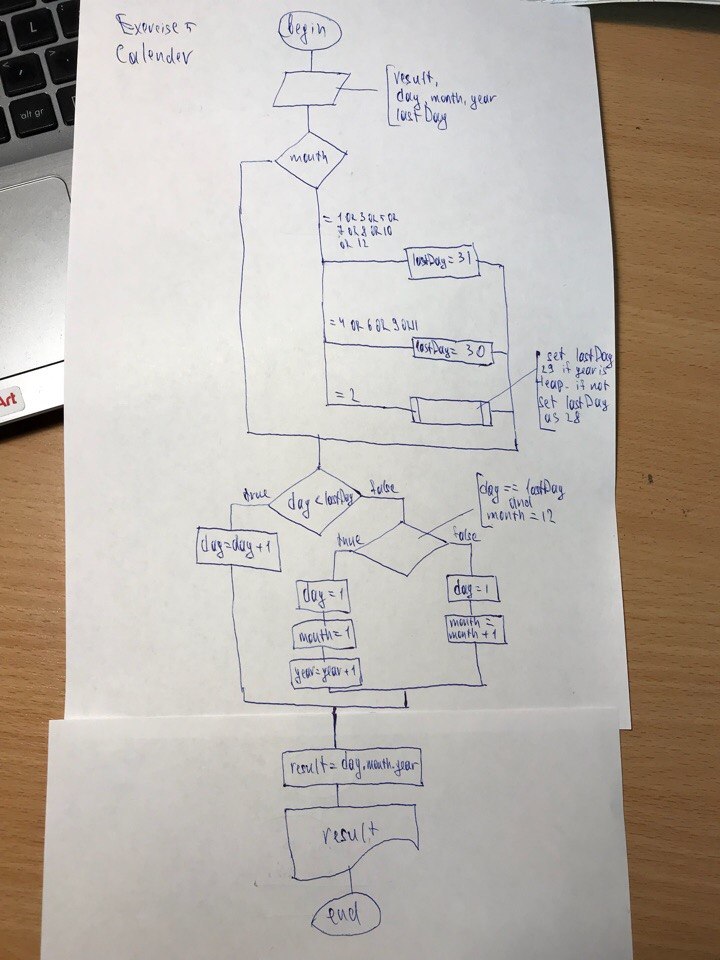 Exercise 5
Calender
begin
result,
day, month, year
lastDay
month
= 1 OR 3 OR 5 OR
7 OR 8 OR 10
OR 12
lastDay = 31
= 4 OR 6 OR 9 OR 11
lastDay = 30
= 2
set lastDay
29 if year is
leap. if not
set lastDay
as 28
day < lastDay
true
false
day == lastDay
and
month = 12
day = day + 1
true
false
day = 1
month = 1
year = year + 1
day = 1
month =
month + 1
result = day, month, year
result
end
alt gr
Art